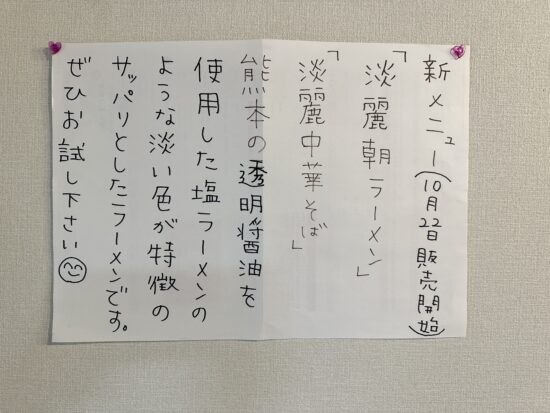 新メニュー(10月22日販売開始)
「淡麗朝ラーメン」
「淡麗中華そば」
熊本の透明醤油を
使用した塩ラーメンの
ような淡い色が特徴の
サッパリとしたラーメンです。
ぜひお試し下さい